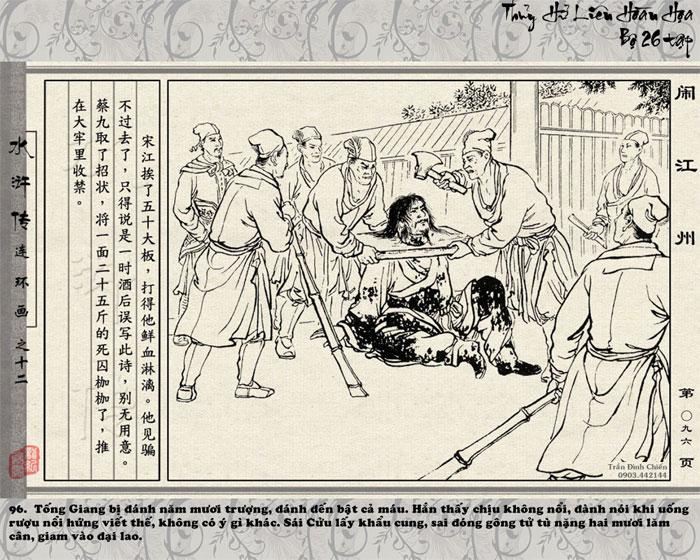 Thủy Hử Liên Hoàn Họa
Bộ 26 tập
水浒传连环画之十二
闹江州
宋江挨了五十大板，打得他鲜血淋漓。他见骗
不过去了，只得说是一时酒后误写此诗，别无用意。
蔡九取了招状，将一面二十五斤的死囚枷枷了，推
在大牢里收禁。
第〇九六页
Trần Đình Chiến
0903.442144
96. Tống Giang bị đánh năm mươi trượng, đánh đến bật cả máu. Hắn thấy chịu không nổi, đành nói khi uống
rượu nổi hứng viết thế, không có ý gì khác. Sái Cửu lấy khẩu cung, sai đóng gông tử tù nặng hai mươi lăm
cân, giam vào đại lao.